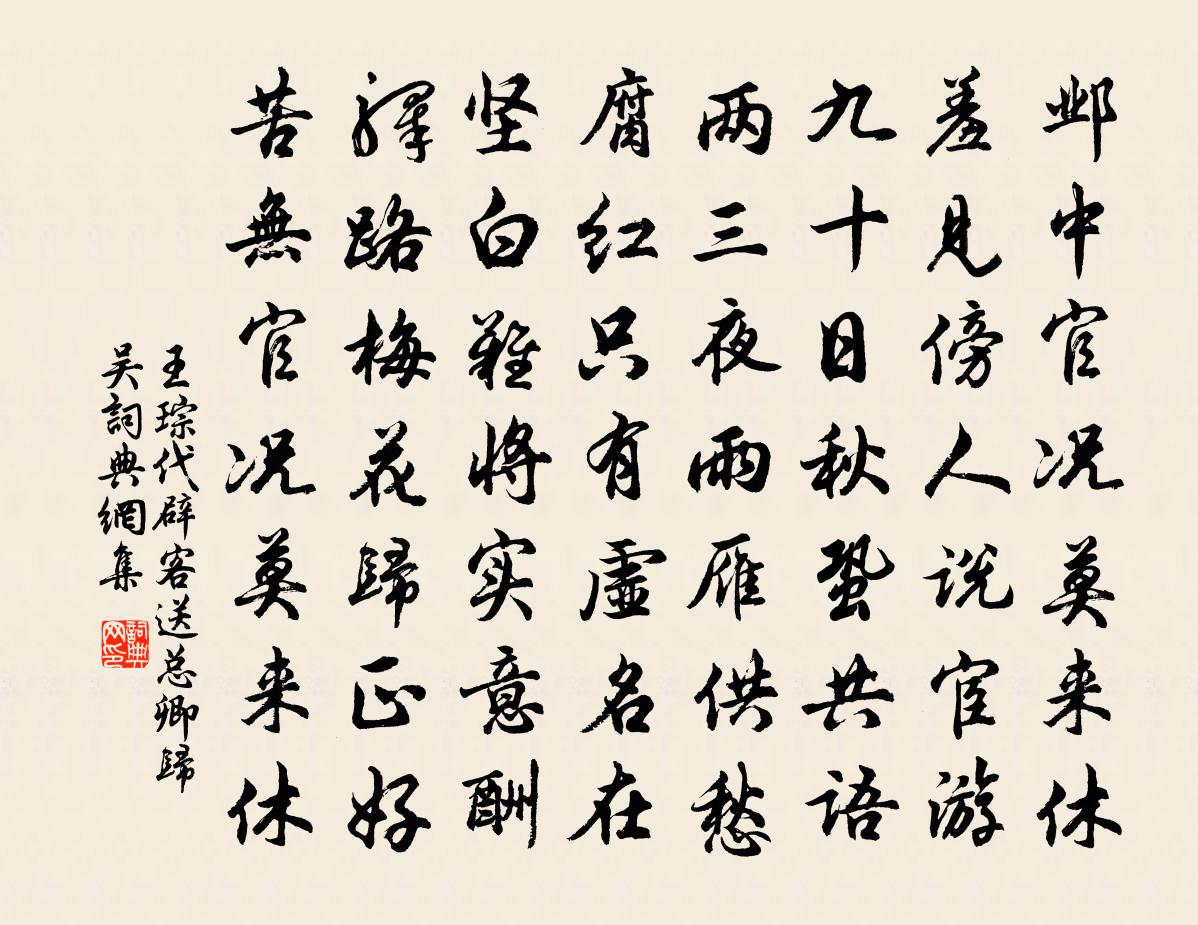 邺中官况莫来休
羞见傍人说宦游
九十日秋蛩共语
两三夜雨雁供愁
腐红只有虚名在
坚白难将实意酬
驿路梅花歸正好
苦無官况莫来休
王琮代辟客送总卿歸
吴詞典網集
詞典网印